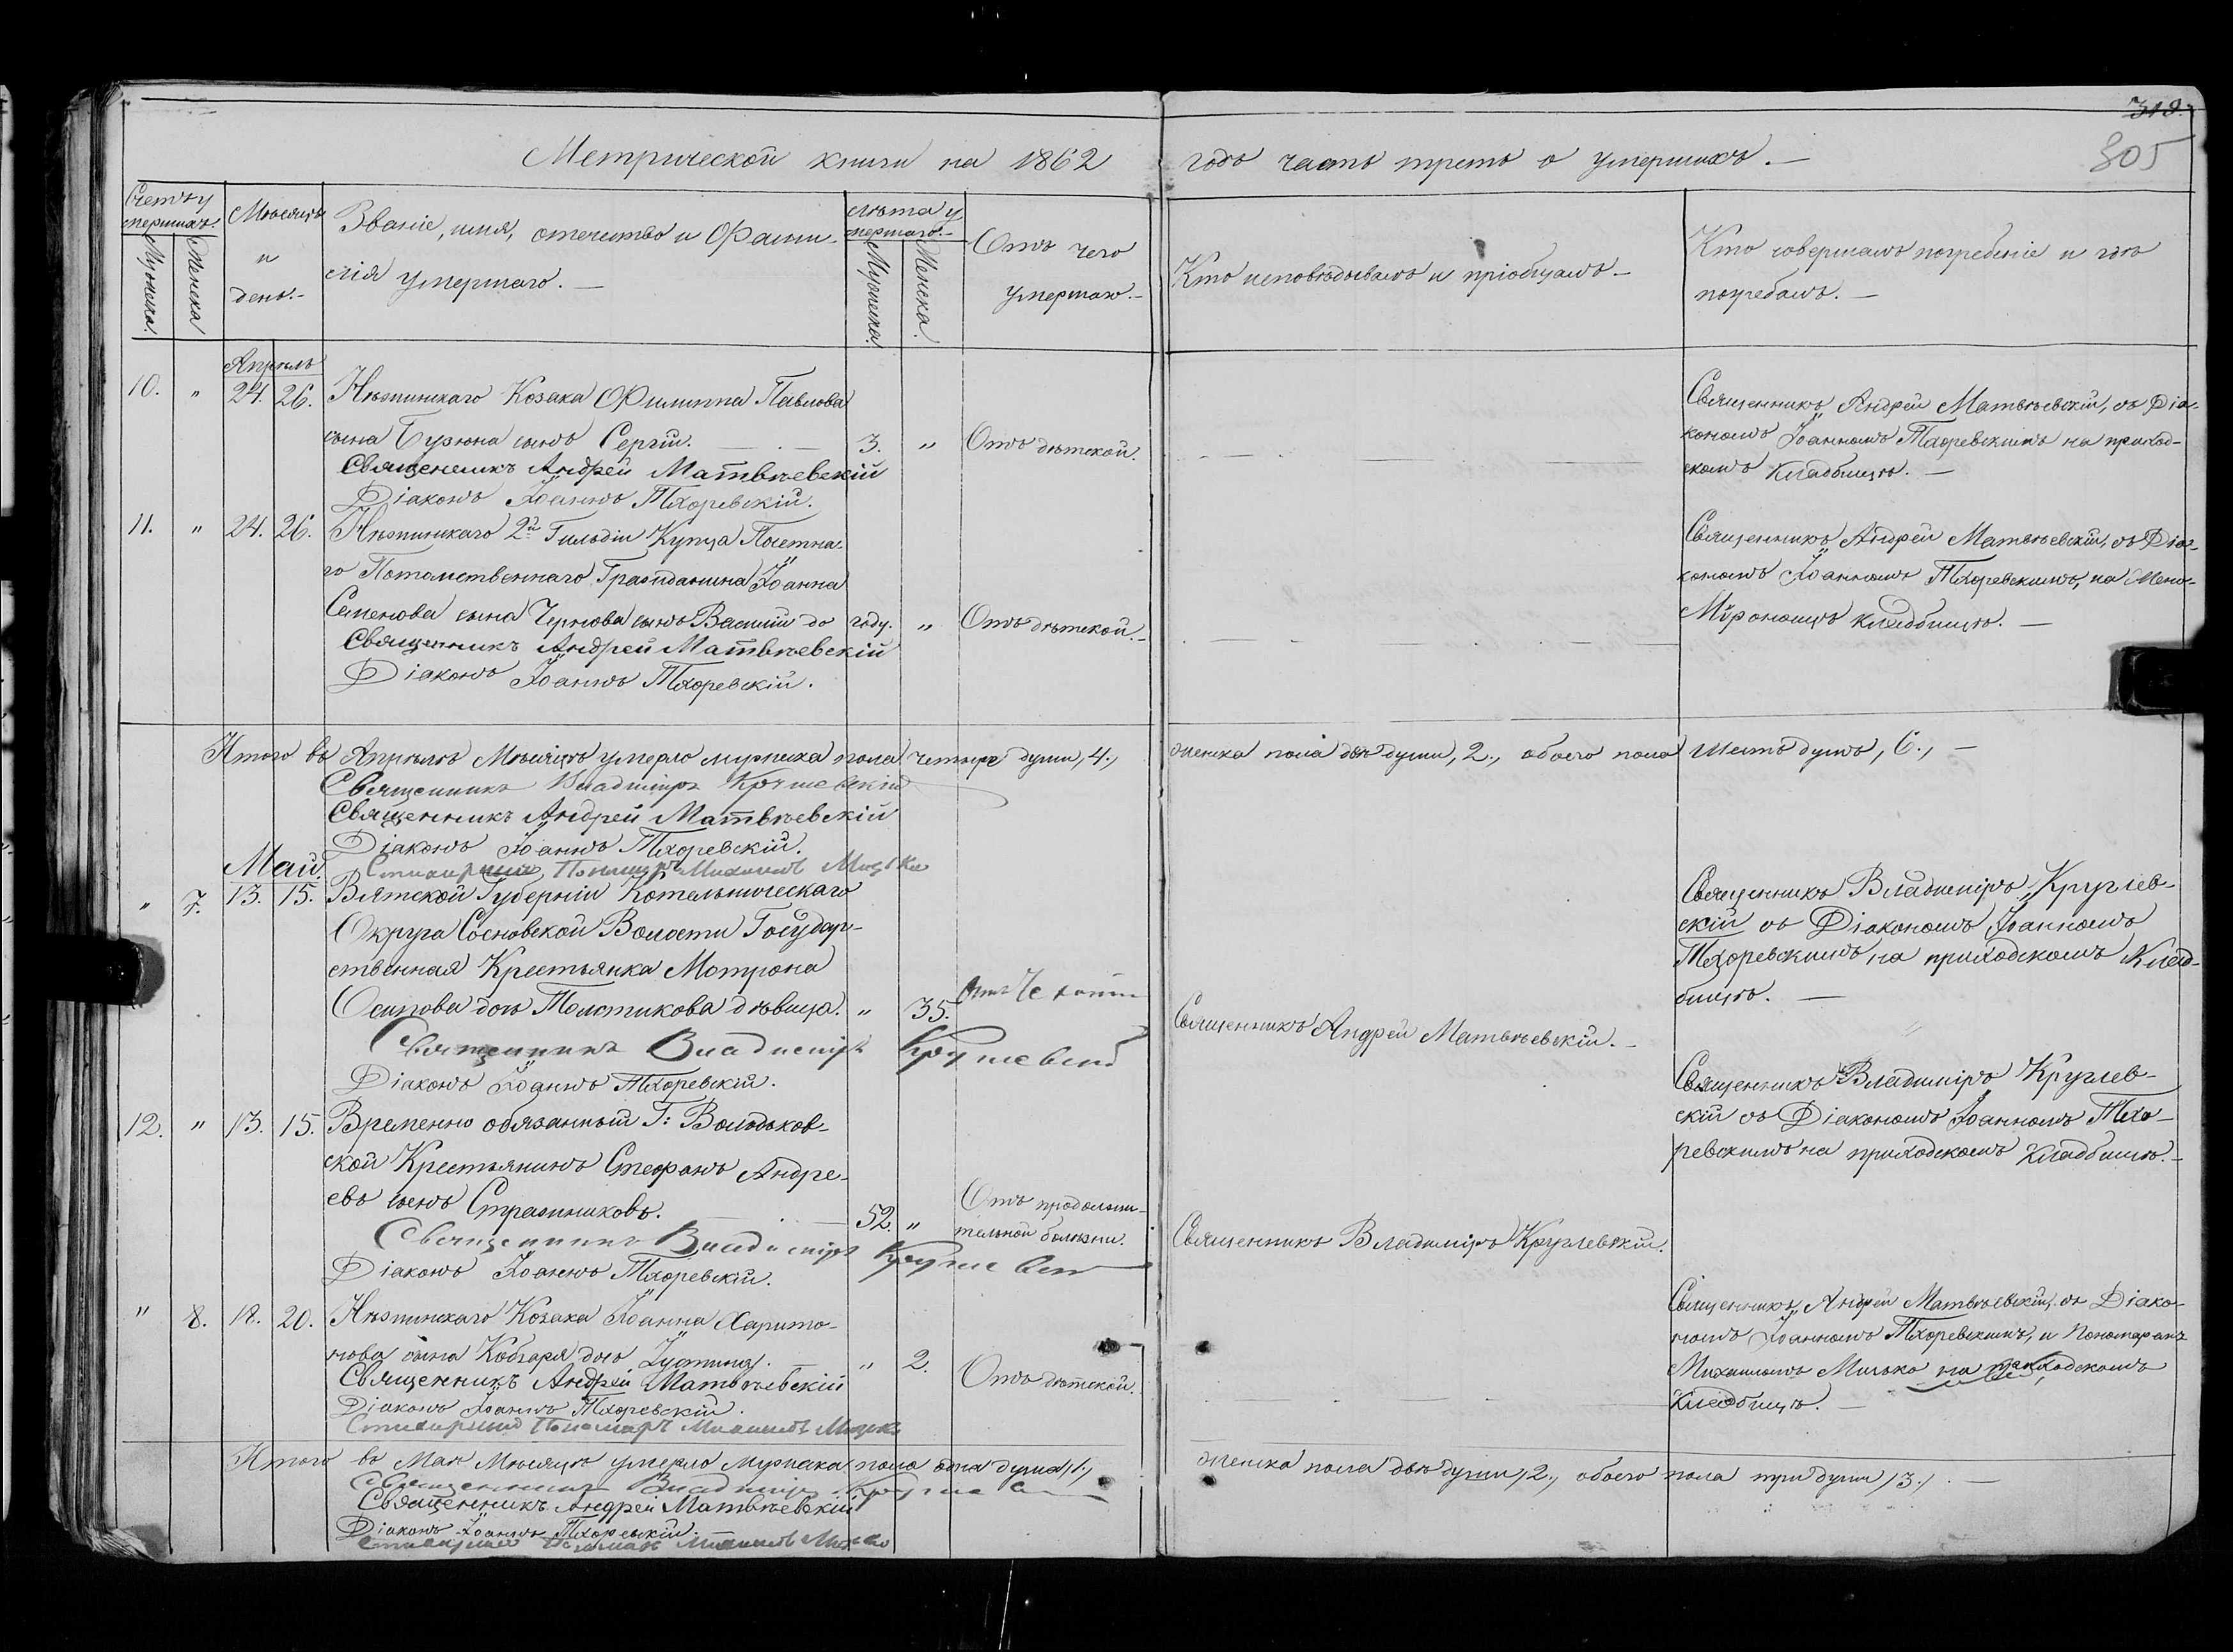 318.
305
Метрической книги на 1862 годъ часть третья о умершихъ. —
Счетъ у
мершихъ.
Мужеска.
Женска
Мѣсяцъ
и
день.-
Званіе, имя, отечество и Фами-
лія умершаго. —
Лѣта у
мершаго.-
Мужеска.
Женска.
Отъ чего
умершаго.-
Кто исповѣдывалъ и пріобщалъ.-
Кто совершалъ погребеніе и гдѣ
погребалъ. —
Апрѣль
10. " 24. 26. Нѣжинскаго Козака Филиппа Павлова
сына Бузюна сынъ Сергій. 3. " Отъ дѣтской.
Священникъ Андрей Матвѣевскій
Діаконъ Іоаннъ Тхоревскій.
Священникъ Андрей Матвѣевскій, съ Діа-
кономъ Іоанномъ Тхоревскимъ на приход-
скомъ кладбищѣ. —
11. " 24. 26. Нѣжинскаго 2й Гильдіи Купца Почетна-
го Потомственнаго Гражданина Іоанна
Семенова сына Чернова сынъ Василій до году. " Отъ дѣтской.-
Священникъ Андрей Матвѣевскій
Діаконъ Іоаннъ Тхоревскій.
Священникъ Андрей Матвѣевскій, съ Діа-
кономъ Іоанномъ Тхоревскимъ, на
кладбищѣ. —
Итого въ Апрѣлѣ Мѣсяцѣ умерло мужеска пола четыре души, 4., женска пола двѣ души, 2., обоего пола шесть душъ, 6., —
Священникъ Владиміръ Круглевскій
Священникъ Андрей Матвѣевскій
Діаконъ Іоаннъ Тхоревскій.
Стихарный Пономарь Михаилъ Мицько
Май.
" 7. 13. 15. Вятской Губерніи Котельническаго
Округа Сосновской Волости Государ-
ственная Крестьянка Мотрона
Осипова дочь Толстикова дѣвица. " 35.
Священникъ Владиміръ Круглевскій
Діаконъ Іоаннъ Тхоревскій.
Священникъ Андрей Матвѣевскій.-
Священникъ Владиміръ Круглев-
скій съ Діакономъ Іоанномъ
Тхоревскимъ на приходскомъ Клад-
бищѣ. —
12. " 13. 15. Временно обязанный Г: Володьков-
ской Крестьянинъ Стефанъ Андре-
евъ сынъ Стражниковъ. 52. " Отъ продолжи-
тельной болѣзни.
Священникъ Владиміръ Круглевскій
Діаконъ Іоаннъ Тхоревскій.
Священникъ Владиміръ Круглевскій.
Священникъ Владиміръ Круглев-
скій съ Діакономъ Іоанномъ Тхо-
ревскимъ на приходскомъ кладбищѣ.-
" 8. 18. 20. Нѣжинскаго Козака Іоанна Харито-
нова сына Кобзаря дочь Іустина. " 2. Отъ дѣтской.
Священникъ Андрей Матвѣевскій
Діаконъ Іоаннъ Тхоревскій.
Стихарный Пономарь Михаилъ Мицько
Священникъ Андрей Матвѣевскій, съ Діако-
номъ Іоанномъ Тхоревскимъ, и Пономаремъ
Михаиломъ Мицько на приходскомъ
Кладбищѣ. —
Итого въ Маѣ Мѣсяцѣ умерло Мужеска пола одна душа, 1., женска пола двѣ души, 2., обоего пола три души, 3., —
Священникъ Владиміръ Круглевскій
Священникъ Андрей Матвѣевскій
Діаконъ Іоаннъ Тхоревскій.
Стихарный Пономарь Михаилъ Мицько